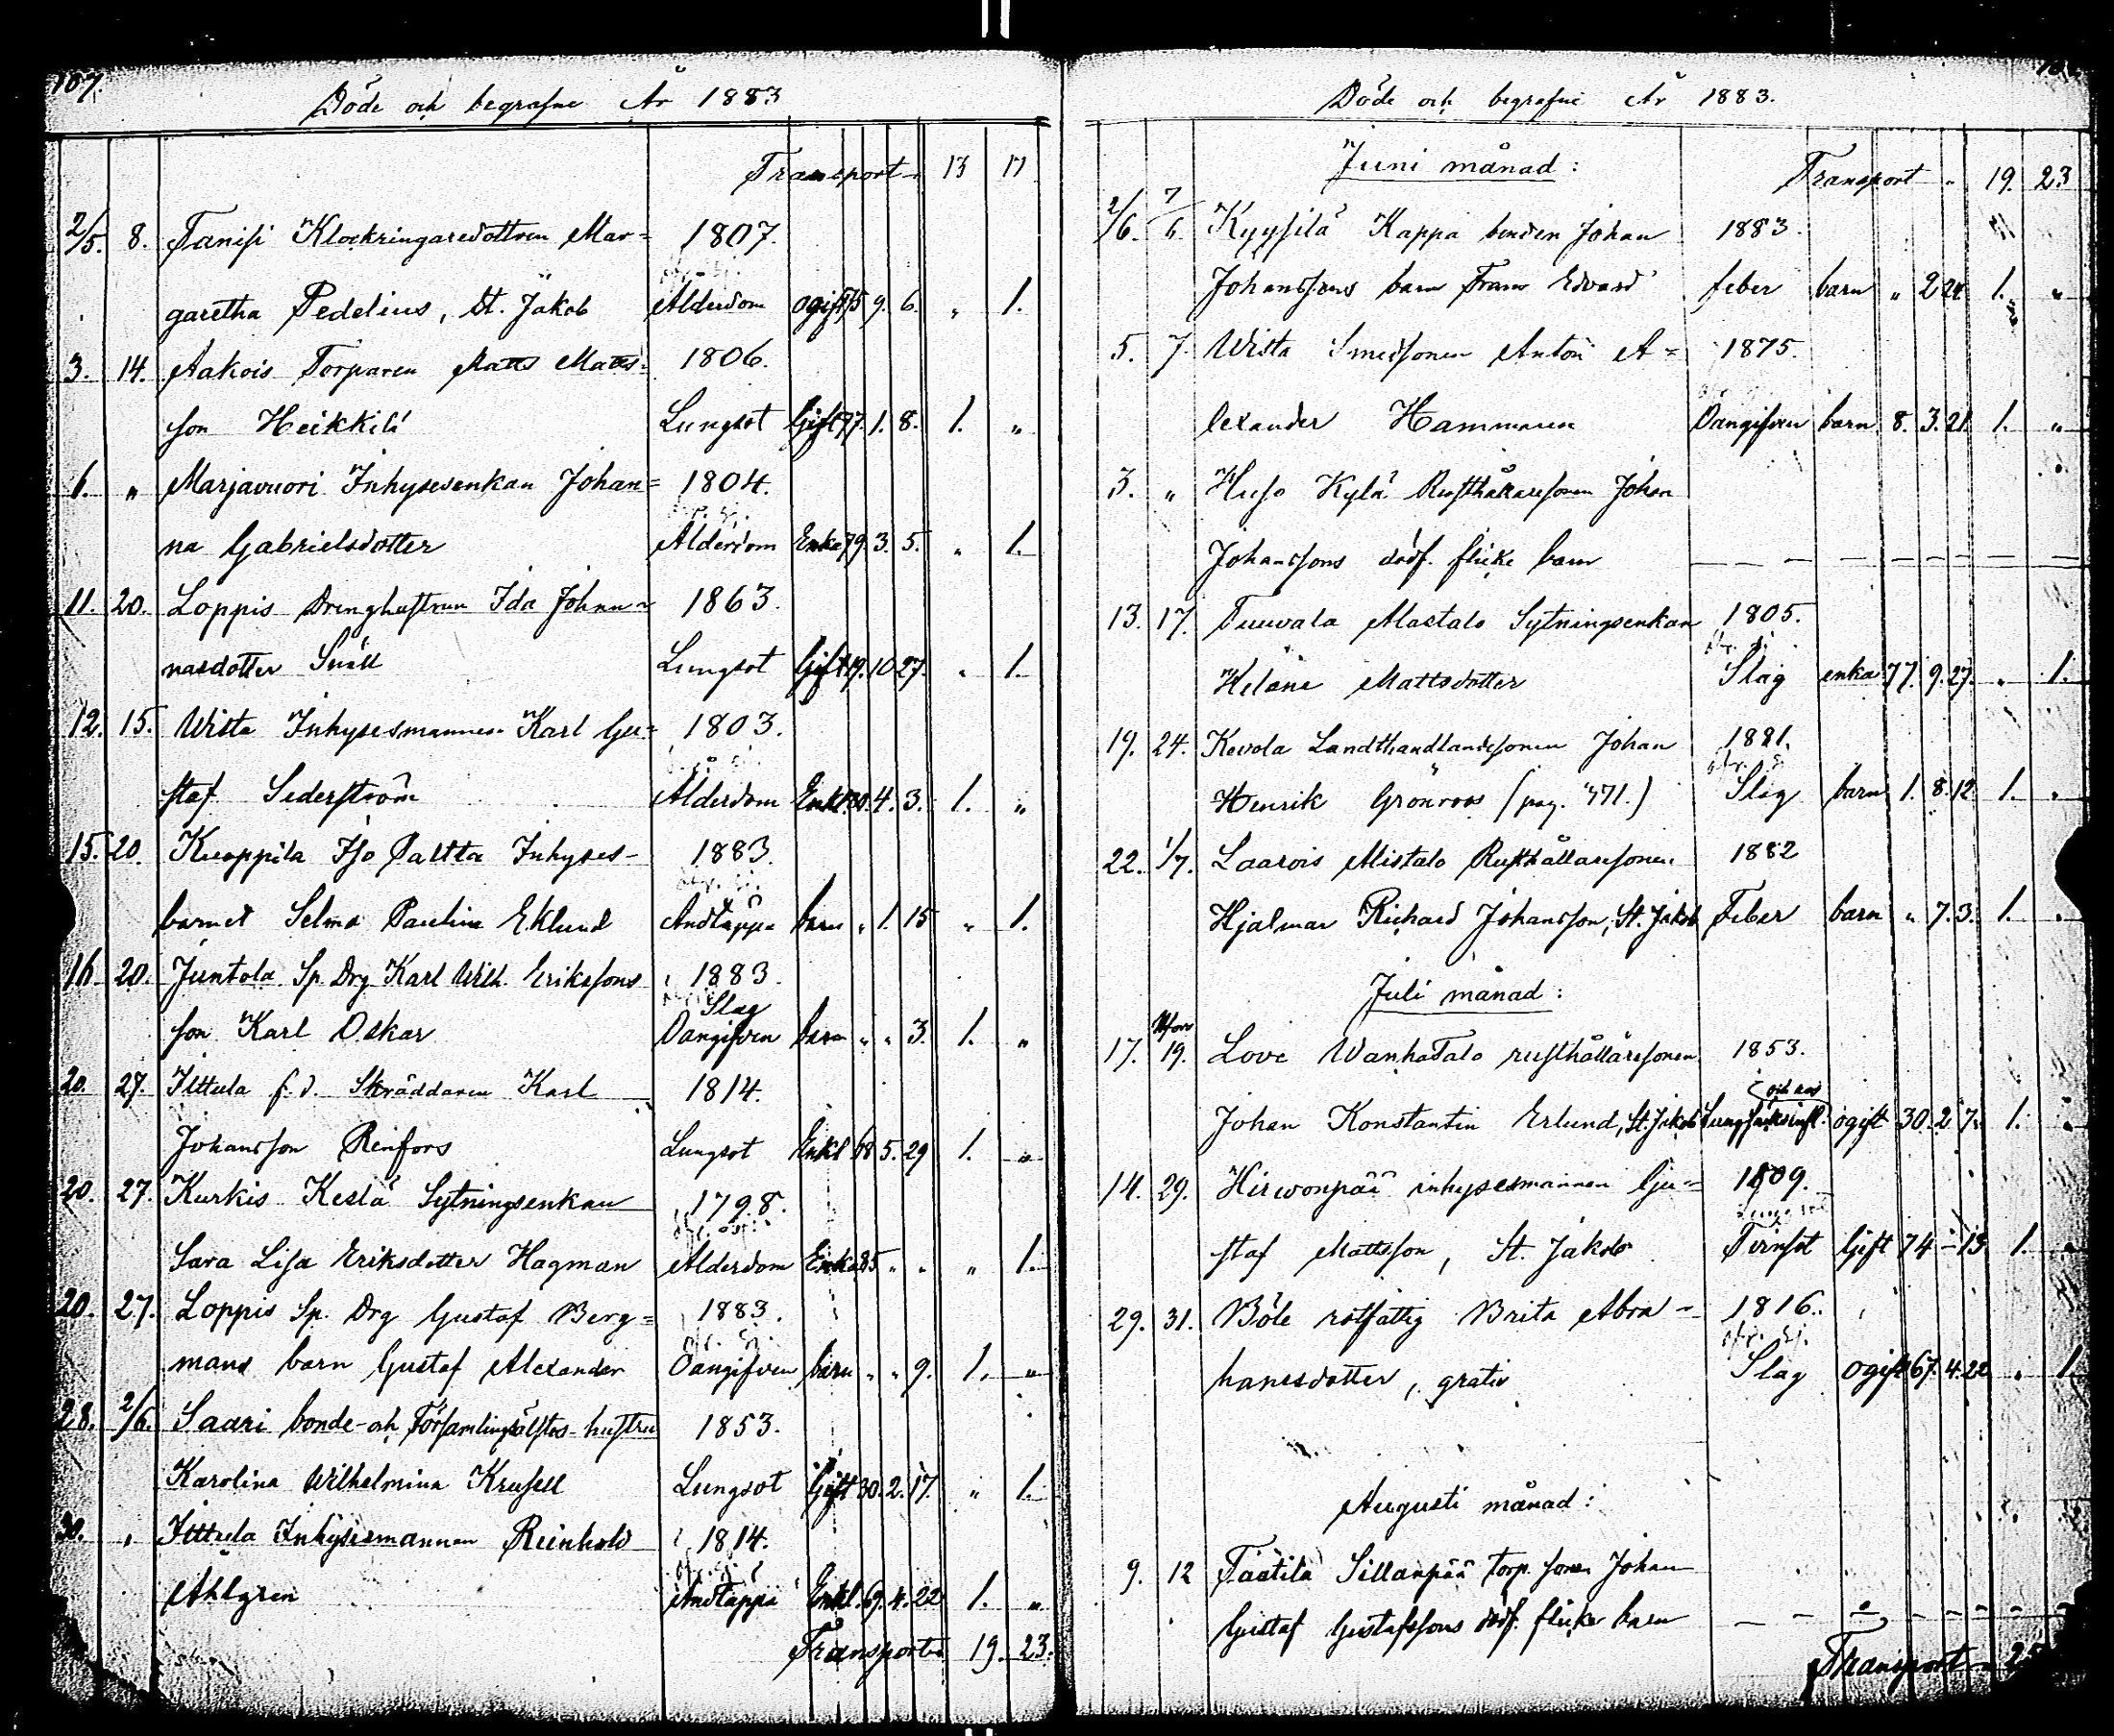 107.
Döde och begrafne År 1883
Transport 13 17
2/5. 8. Tanisi Klockringaredottren Mar= 1807.
garetha Pedelius, St. Jakob Ålderdom ogift 75 9. 6. „ 1.
3. 14. Aakois Torparen Matts Matts= 1806.
son Heikkilä Lungsot Gift 77. 1. 8. 1. „
6. „ Marjavuori Inhysesenkan Johan= 1804.
na Gabrielsdotter Ålderdom Enka 79. 3. 5. „ 1.
11. 20. Loppis Drenghustrun Ida Johan= 1863.
nasdotter Snäll Lungsot Gift 19. 10 27. „ 1.
12. 15. Wista Inhysesmannen Karl Gu= 1803.
staf Sederström Ålderdom Enkl. 80. 4. 3. 1. „
15. 20. Kuoppila Iso Paltta Inhyses- 1883.
barnet Selma Paulina Eklund Andtäppa barn „ 1. 15 „ 1.
16 20. Juntola Sp. Drg Karl Wilh. Erikssons 1883.
Slag
son Karl Oskar Oangifven barn „ „ 3. 1. „
20. 27. Ilttula f.d. Skräddaren Karl 1814.
Johansson Reinfors Lungsot Enkl 68 5. 29 1. „
20. 27. Kurkis Keslä Sytningsenkan 1798.
Sara Lisa Eriksdotter Hagman Ålderdom Enka 85 „ „ „ 1.
20. 27. Loppis Sp. Drg Gustaf Berg= 1883.
mans barn Gustaf Alexander Oangifven barn „ „ 9. 1. „
28. 2/6. Saari bonde- och Församlingsälstes-hustru 1853.
Karolina Wilhelmina Krusell Lungsot Gift 30. 2. 17. „ 1.
30. „ Ilttula Inhysesmannen Reinhold 1814.
Ahlgren Andtäppa Enkl. 69. 4. 22 1. „
Transport 19. 23.
Döde och begrafne År 1883.
Juni månad:
Transport „ 19. 23
2/6. 7/6. Kyysilä Kappa bonden Johan 1883.
Johanssons barn Frans Edvard feber barn „ 2 24 1. „
5. 7. Wista Smedsonen Anton A= 1875.
lexander Hammaren Oangifven barn 8. 3. 21. 1. „
3. „ Huso Kylä Rusthållaresonen Johan
Johanssons dödf. flicke barn
13. 17. Tuuvala Mastalo Sytningsenkan 1805.
Helena Mattsdotter Slag enka 77. 9. 27. „ 1.
19. 24. Kovola Landthandlandesonen Johan 1881.
Henrik Grönroos (pag. 471.) Slag barn 1. 8. 12 1. „
22. 1/7. Laarois Mistalo Rusthållaresonen 1882
Hjalmar Richard Johansson, St. Jakob Feber barn „ 7. 3. 1. „
Juli månad:
17. 19. Love WanhaTalo rusthållaresonen 1853.
Johan Konstantin Erlund, St. Jakob ogift 30. 2 7. 1. „
14. 29. Hirvonpää inhysesmannen Gu= 1809.
staf Mattsson, St. Jakob Tvinsot Gift 74 – 13 1. „
29. 31. Böle rotfattig Brita Abra= 1816.
hamsdotter, gratis Slag ogift 67. 4. 22 „ 1.
Augusti månad:
9. 12 Taatila Sillanpää torp. sonen Johan
Gustaf Gustafssons dödf. flicke barn
Transport